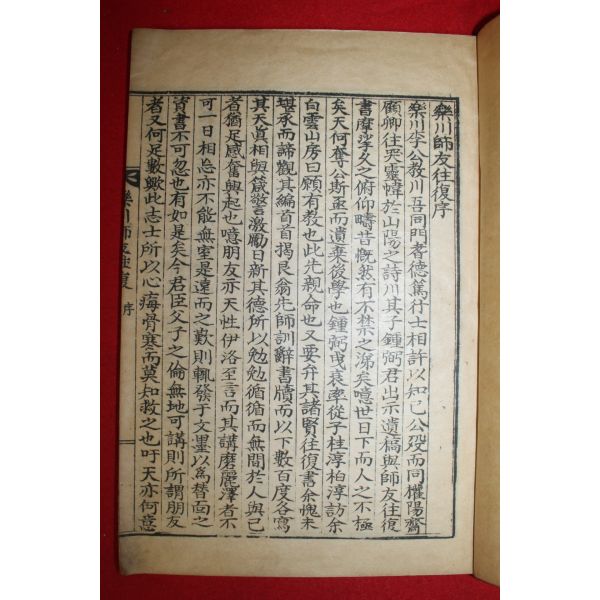 欒川師友往復序
欒川李公教川吾同門耆德篤行士相許以知己公歿而同權陽齋
顧卿往哭靈幃於山陽之詩川其子鍾弼君出示遺稿與師友往復
書摩挲久之俯仰疇昔慨然有不禁之涕矣噫世日下而人之不極
矣天何奪公斯亟而遺棄後學也鍾弼曳衰率從子柱淳柏淳訪余
白雲山房曰願有教也此先親命也又要弁其諸賢往復書余愧未
堪承而諦觀其編首首揭艮翁先師訓辭書牘而以下數百度各寫
其天真相與箴警激勵日新其德所以勉勉循循而無間於人與己
者猶足感奮興起也噫朋友亦天性伊洛至言而其講磨麗澤者不
可一日相忘亦不能無室是遠而之歎則輒發于文墨以爲替面之
資書不可忽也有如是矣今君臣父子之倫無地可講則所謂朋友
者又何足數歟此志士所以心痗骨寒而莫知救之也吁天亦何
欒川師友往復 序